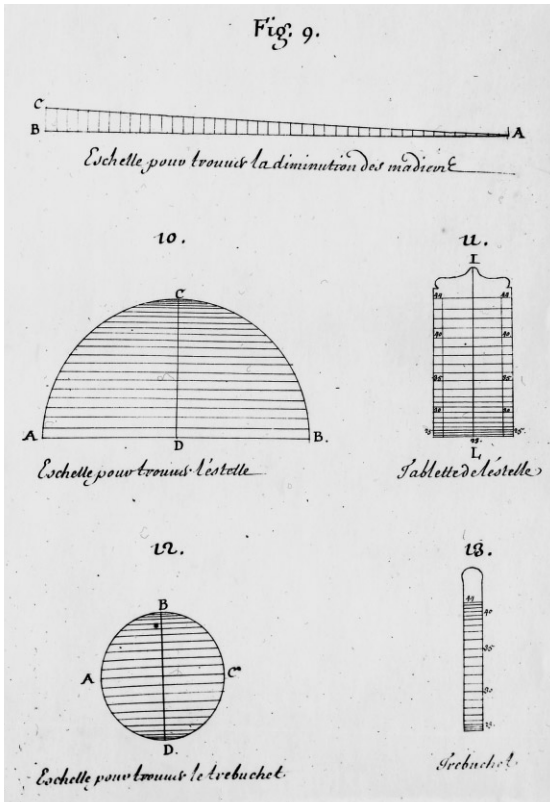 Fig. 9.
C
B
A
Eschelle pour trouuer la diminution des madierſ
10.
C
A
D
B.
Eschelle pour trouuer l'éstelle
11.
I
44 44
40 40
35 35
30 30
25 25
23.
L
Tablette de l'éstelle
12.
B
A
C
D.
Eschelle pour trouuer le trebuchet
13.
44
40
35
30
25
Trebuchet